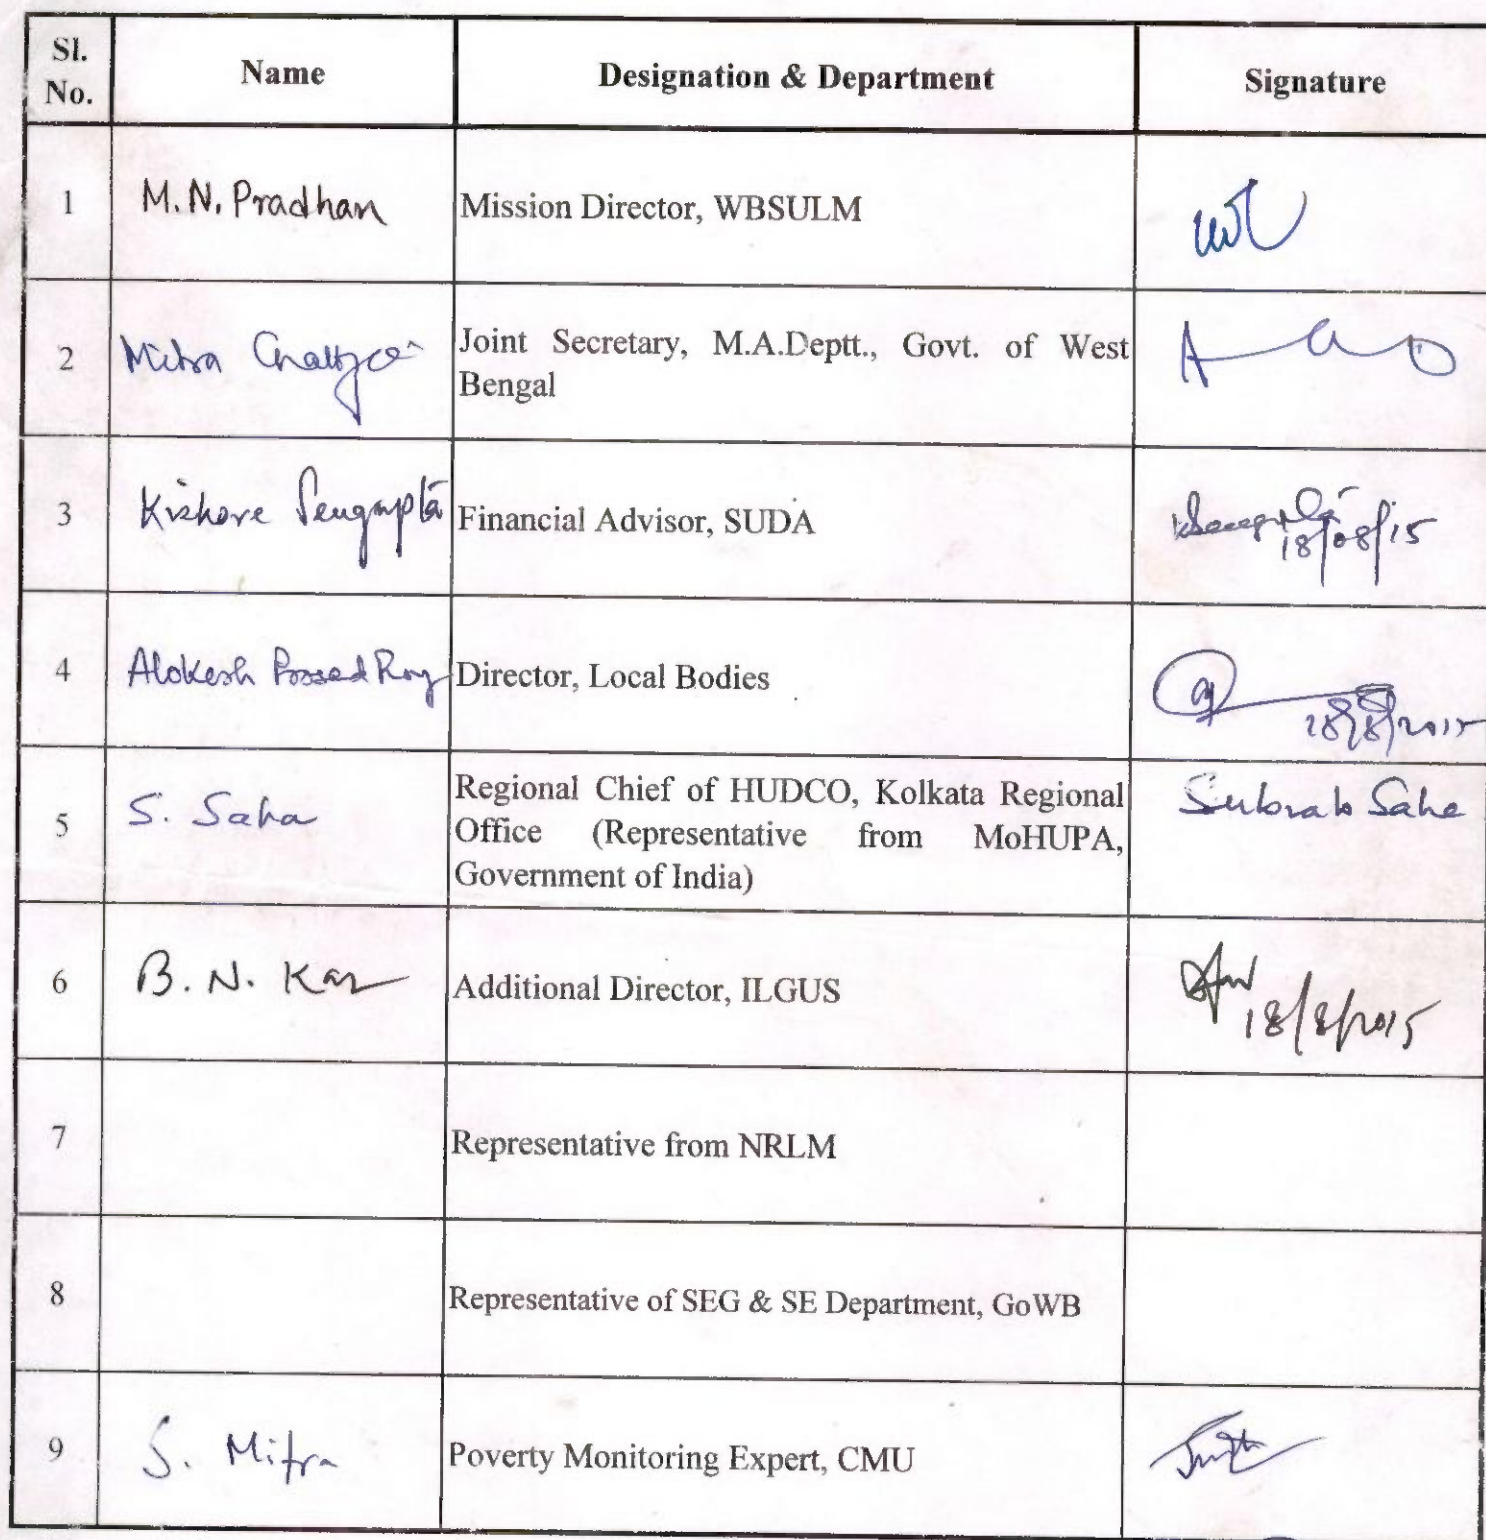 Sl. No.
Name
Designation & Department
Signature
1
M.N. Pradhan
Mission Director, WBSULM
2
Mitra Chatterjee
Joint Secretary, M.A.Deptt., Govt. of West
Bengal
3
Kishore Sengupta
Financial Advisor, SUDA
18/08/15
4
Alokesh Prosad Roy
Director, Local Bodies
18/8/2015
5
S. Saha
Regional Chief of HUDCO, Kolkata Regional
Office (Representative from MoHUPA,
Government of India)
Subrata Saha
6
B. N. Kar
Additional Director, ILGUS
18/8/2015
7
Representative from NRLM
8
Representative of SEG & SE Department, GoWB
9
S. Mitra
Poverty Monitoring Expert, CMU